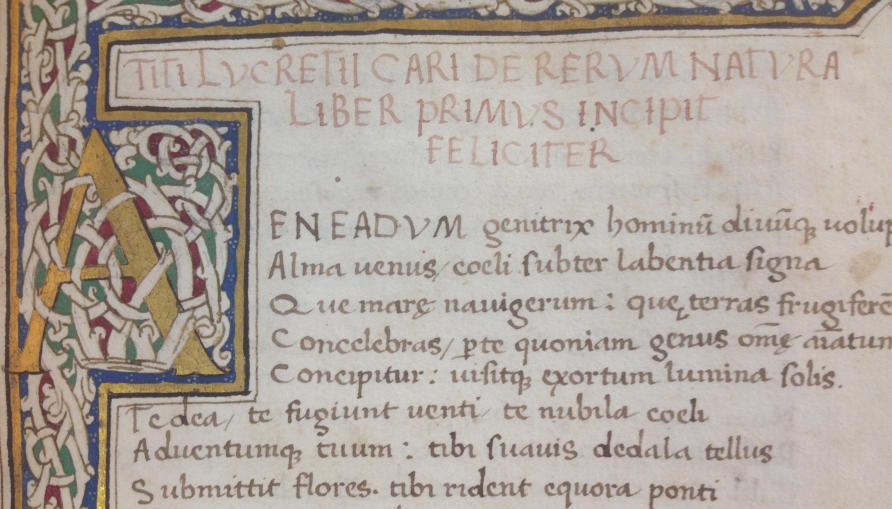 TITI LVCRETII CARI DE RERVM NATVRA
LIBER PRIMVS INCIPIT
FELICITER
AENEADVM genitrix hominū diuūq; uolup
Alma uenus/ coeli subter labentia signa
Que marę nauigerum: quę terras frugiferē
Concelebras/ ꝑte quoniam genus om̄ę aīatum
Concipitur: uisitq; exortum lumina solis.
Te dea/ te fugiunt uenti/ te nubila coeli
Aduentumq; tuum: tibi suauis dedala tellus
Submittit flores. tibi rident equora ponti